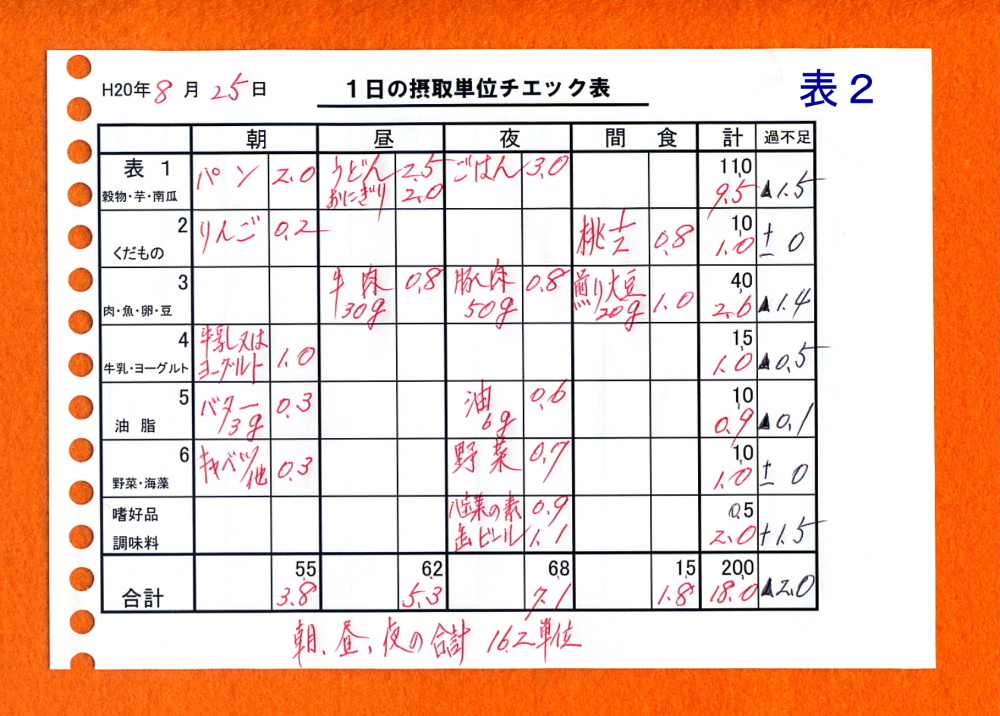 H20年8月25日
1日の摂取単位チェック表
表2
朝 昼 夜 間食 計 過不足
表1 穀物・芋・南瓜 パン 2.0 うどん 2.5 おにぎり 2.0 ごはん 3.0 11.0 9.5 ▲1.5
2 くだもの りんご 0.2 桃 1/2 0.8 1.0 1.0 ±0
3 肉・魚・卵・豆 牛肉 30g 0.8 豚肉 50g 0.8 煎り大豆 20g 1.0 4.0 2.6 ▲1.4
4 牛乳・ヨーグルト 牛乳又は ヨーグルト 1.0 1.5 1.0 ▲0.5
5 油脂 バター 3g 0.3 油 6g 0.6 1.0 0.9 ▲0.1
6 野菜・海藻 キャベツ他 0.3 野菜 0.7 1.0 1.0 ±0
嗜好品 調味料 の素 0.9 缶ビール 1.1 0.5 2.0 +1.5
合計 5.5 3.8 6.2 5.3 6.8 7.1 1.5 1.8 20.0 18.0 ▲2.0
朝、昼、夜の合計 16.2単位